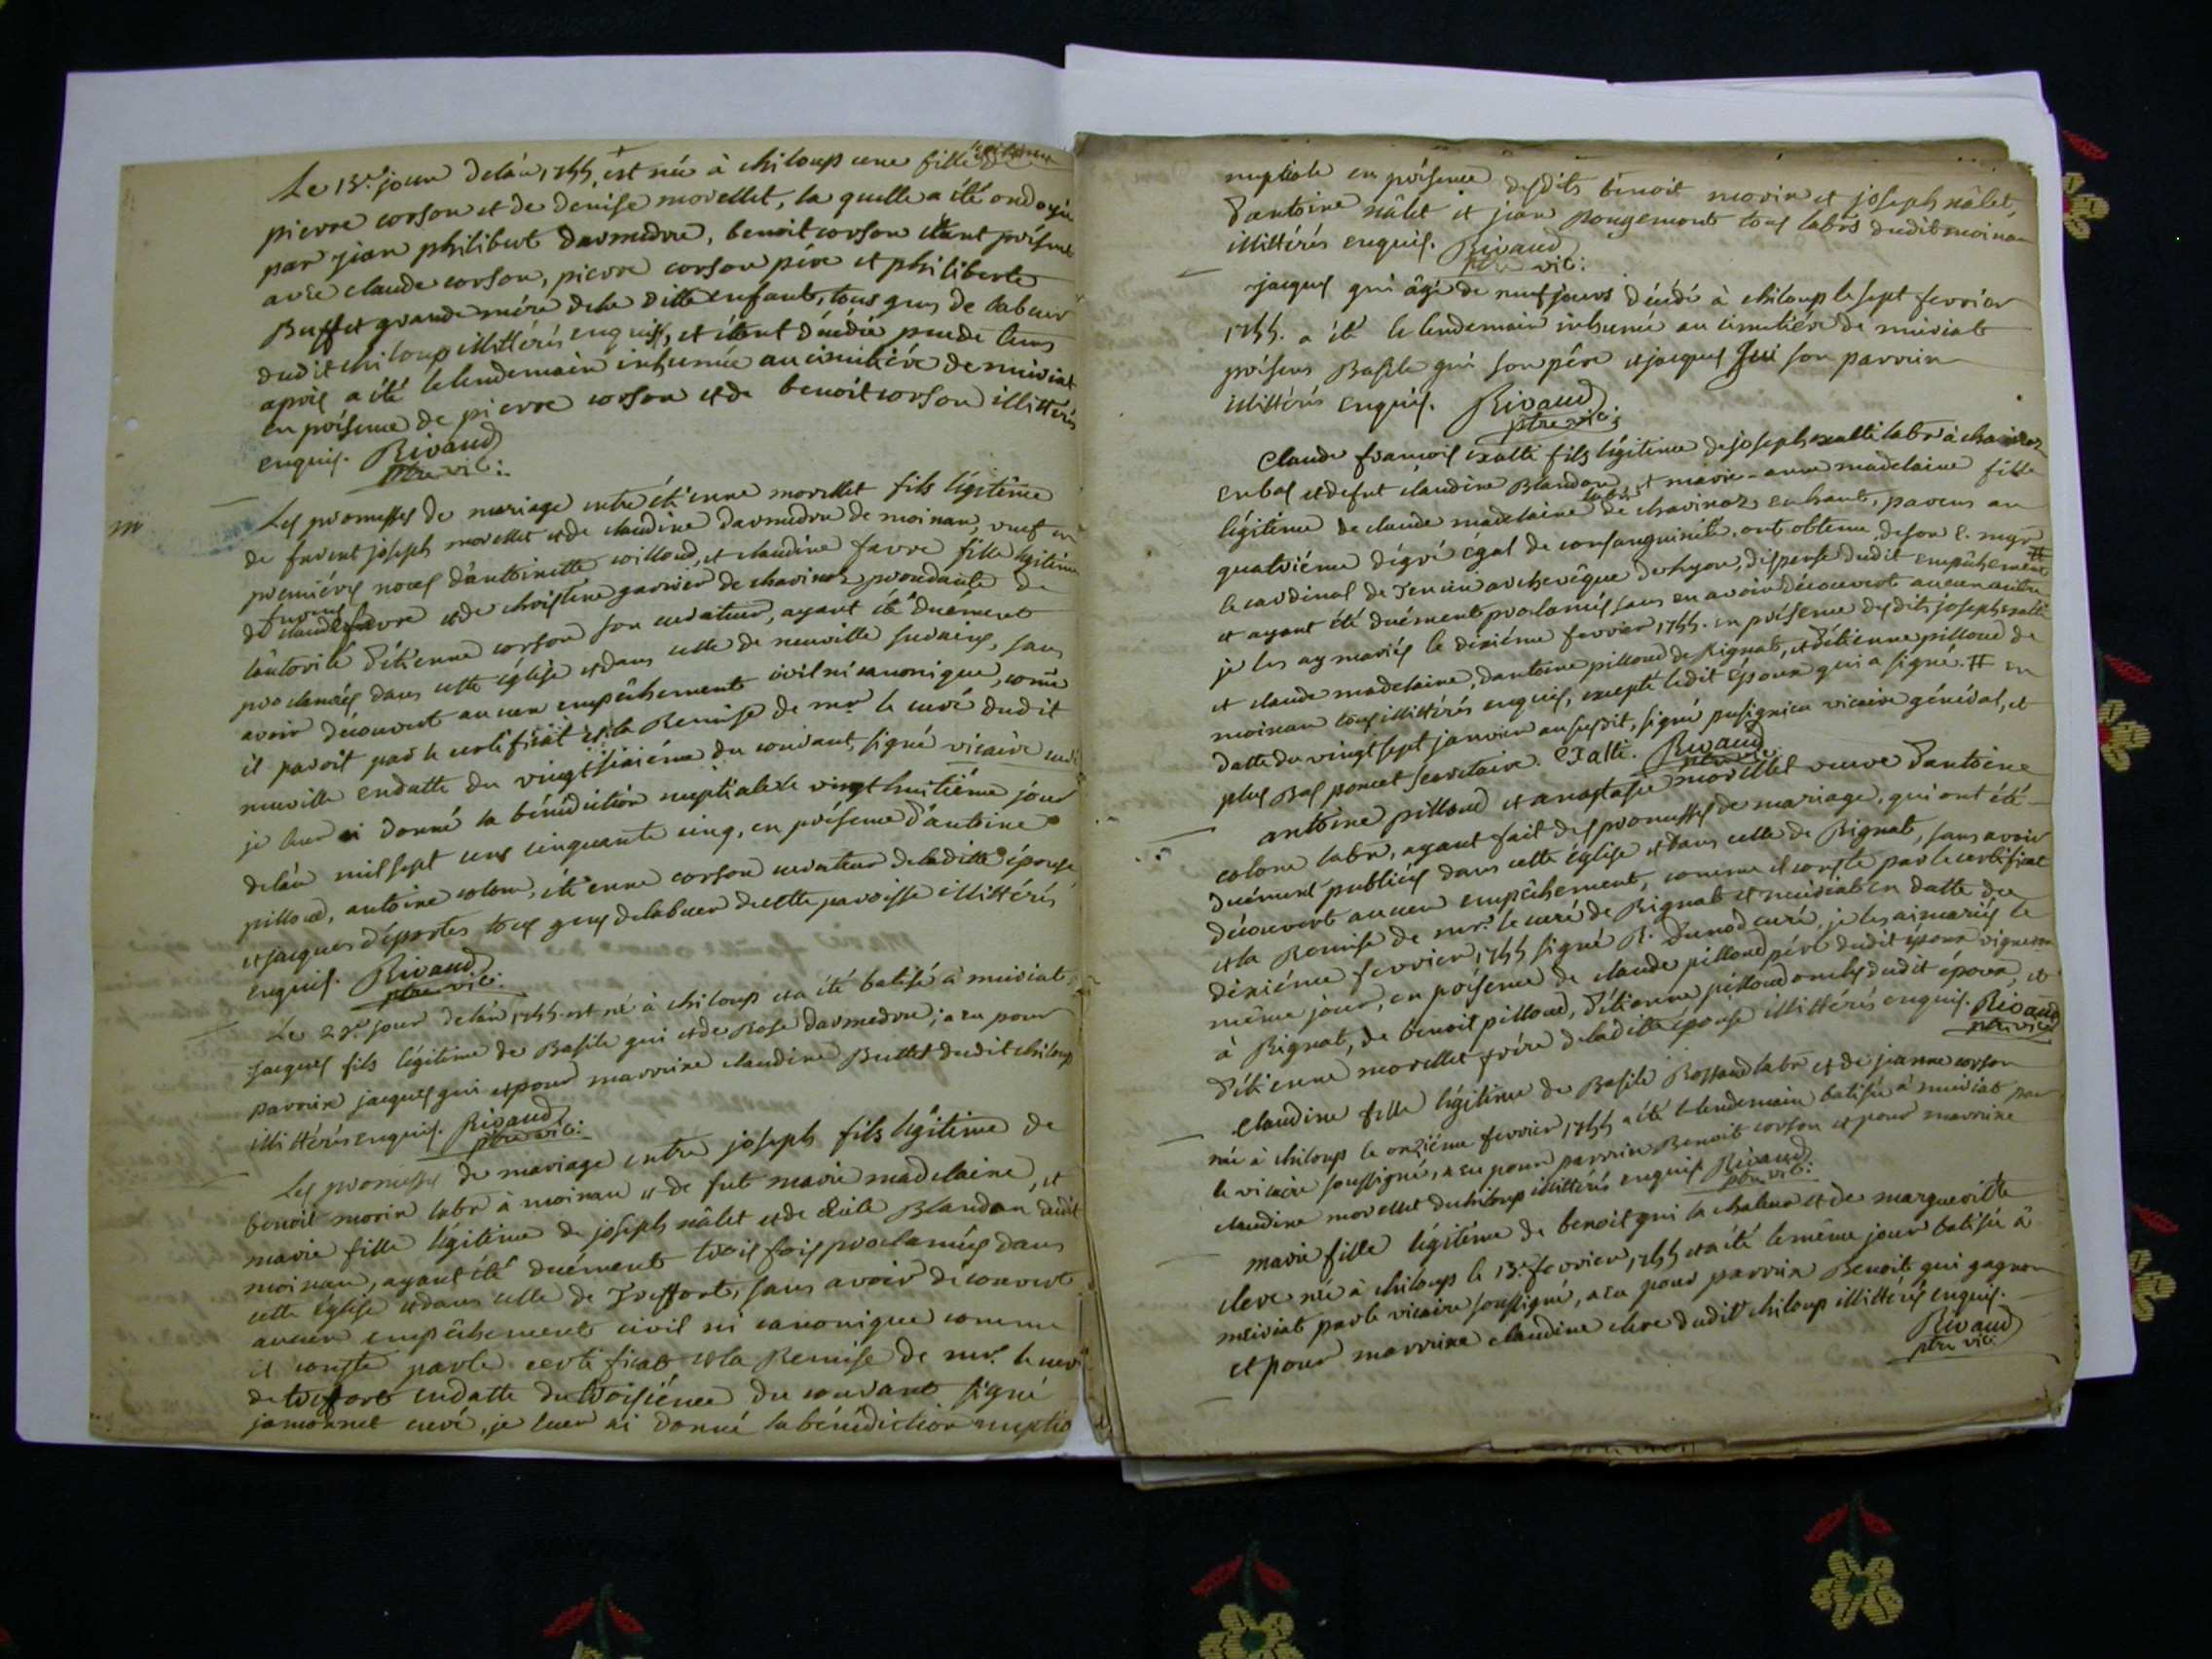 Le 13e. jour de l'an 1755, est née à chiloup une fille
pierre corson et de denise morellet, la quelle a été ondoyée
par jean philibert darmedru, benoit corson étant présent
avec claude corson, pierre corson pére et philiberte
Buffet grande mére de la ditte enfant, tous gens de labeur
dudit chiloup illittérés enquis, et étant décédée peu de tems
après a été le lendemain inhumée au cimitiére de meiriat
en présence de pierre corson et de benoit corson illittérés
enquis. Rivaud
ptre vic:
m
Les promesses de mariage entre étienne morellet fils légitime
de furent joseph morellet et de claudine darmedru de moinan, veuf en
premiéres noces d'antoinette willoud, et claudine favre fille légitime
de furent claude favre et de christine garnier de chavinoz procedante de
l'autorité d'étienne corson son curateur, ayant été duément
proclamées dans cette église et dans celle de neuville sur ains, sans
avoir découvert aucun empêchement civil ni canonique, come
il paroit par le certificat et la Remise de mr. le curé dudit
neuville en datte du vingtsixiéme du courant, signé vicaire
je leur ai donné la bénédiction nuptiale le vingt huitiéme jour
de l'an mil sept cens cinquante cinq, en présence d'antoine
pilloud, antoine colom, étienne corson curateur de la ditte épouse
et jacques déportes tous gens de labeur de cette paroisse illittérés
enquis. Rivaud
ptre vic:
Le 29e. jour de l'an 1755 est né à chiloup et a été batisé à meiriat
jacques fils légitime de Basile gui et de Rose darmedru; a eu pour
parrain jacques gui et pour marraine claudine Buttet dudit chiloup
illittérés enquis. Rivaud
ptre vic:
Les promesses de mariage entre joseph fils légitime de
benoit morin labr à moinan et de fut marie madelaine, et
marie fille légitime de joseph nâlet et de Blandon dudit
moinan, ayant été duement trois fois proclamées dans
cette église et dans celle de Treffort, sans avoir découvert
aucun empêchement civil ni canonique comme
il conste par le certificat et la Remise de mr. le curé
de treffort en datte du troisiéme du courant signé
jamonnet curé, je leur ai donné la bénédiction nuptia
nuptiale en présence desdits benoit morin et joseph nâlet,
d'antoine nâlet et jean pougemont tous labrs dudit moinan
illittérés enquis. Rivaud
ptre vic:
jacques gui âgé de neuf jours décédé à chiloup le sept fevrier
1755. a été le lendemain inhumé au cimitiére de meiriat
présens Basile gui son pére et jacques gui son parrain
illittérés enquis. Rivaud
ptre vic:
Claude françois exalté fils légitime de joseph exalté labr à chavinoz
en bas et de fut claudine Blandon, et marie-anne madelaine fille
légitime de claude madelaine labr de chavinoz en haut, parens au
quatriéme dégré égal de consanguinité, ont obtenu de son E. mgr
le cardinal de Tencin archevêque de Lyon, dispense dudit empêchement #
et ayant été duément proclamés sans en avoir découvert aucun autre
je les ay mariés le dixiéme fevrier 1755. en présence desdits joseph exalté
et claude madelaine, d'antoine pilloud de Rignat, et d'étienne pilloud de
moinan tous illittérés enquis, excepté ledit époux qui a signé. # en
datte du vingt sept janvier aususdit, signé pusignieu vicaire général, et
plus Bas poncet secretaire. C Exalté. Rivaud
ptre vic:
antoine pilloud et anastasie morellet veuve d'antoine
colom labr, ayant fait des promesses de mariage, qui ont été
duément publiées dans cette église et dans celle de Rignat, sans avoir
découvert aucun empêchement, comme il conste par le certificat
et la Remise de mr. le curé de Rignat et meiriat en datte du
dixiéme fevrier 1755 signé R. Dunod curé, je les ai mariés le
même jour, en présence de claude pilloud pére dudit époux vigneron
à Rignat, de benoit pilloud, d'étienne pilloud oncles dudit époux, et
d'étienne morellet frére de ladite épouse illittérés enquis. Rivaud
ptre vic:
Claudine fille légitime de Basile Rossand labr et de jeanne corson
née à chiloup le onziéme fevrier 1755 a été le lendemain batisée à meiriat par
le vicaire soussigné, a eu pour parrain Benoit corson et pour marraine
claudine morellet de chiloup illittérés enquis. Rivaud
ptre vic:
marie fille légitime de benoit gui la chaleur et de marguerite
clere née à chiloup le 13e. fevrier 1755 et a été le même jour batisée à
meiriat par le vicaire soussigné, a eu pour parrain Benoit gui gagnon
et pour marraine claudine clere dudit chiloup illittérés enquis.
Rivaud
ptre vic: